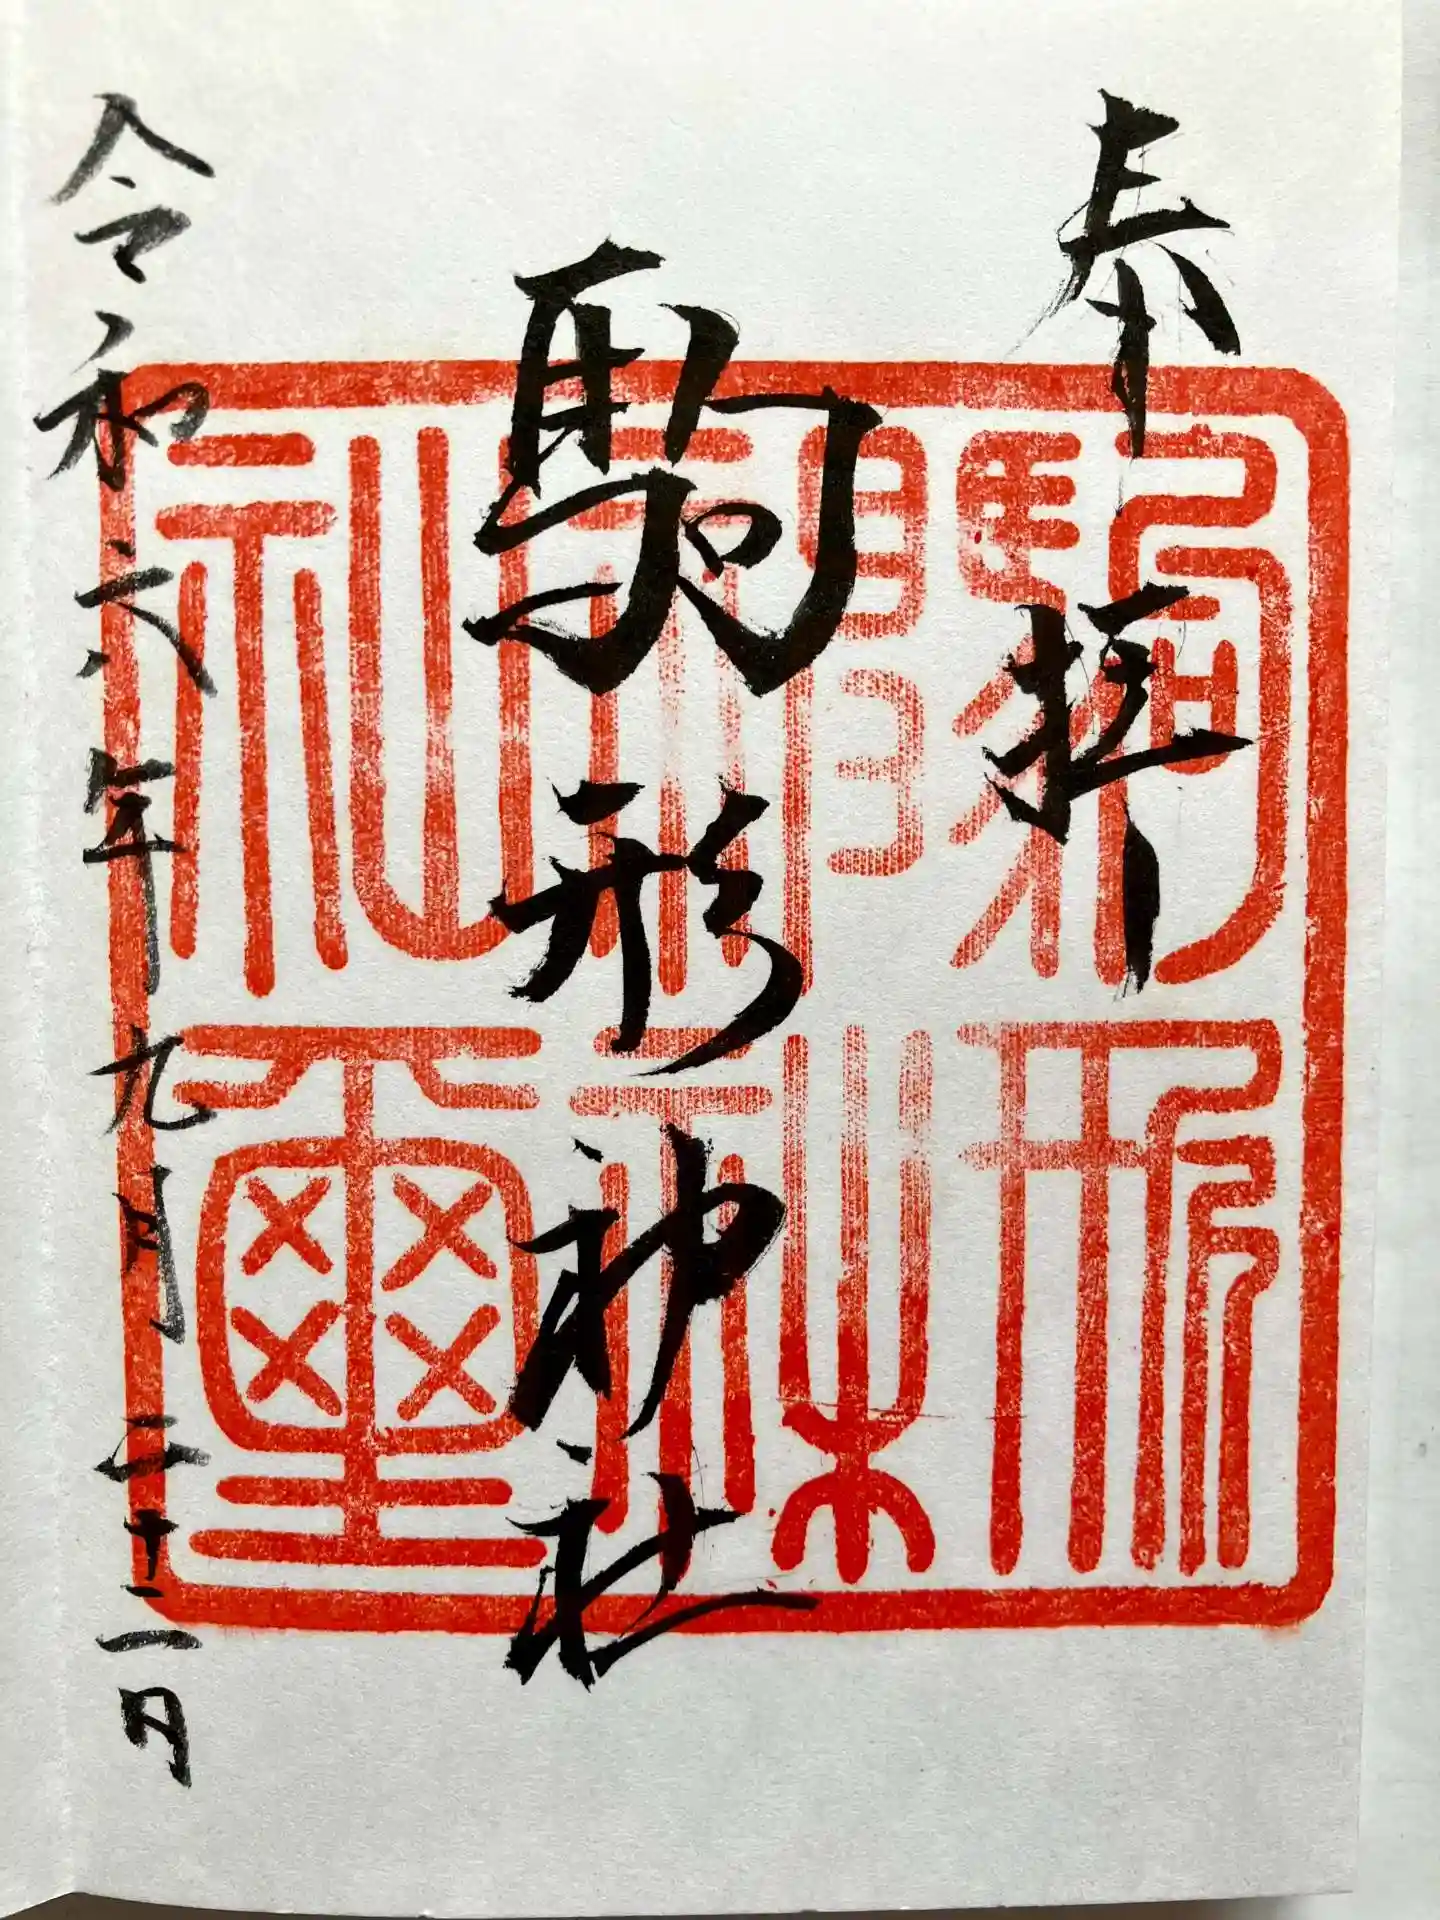 奉拝
駒形神社
令和六年九月二十二日
駒形
璽